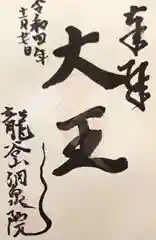 奉拝
大王
令和四年
十二月廿日
龍谷山洞泉院